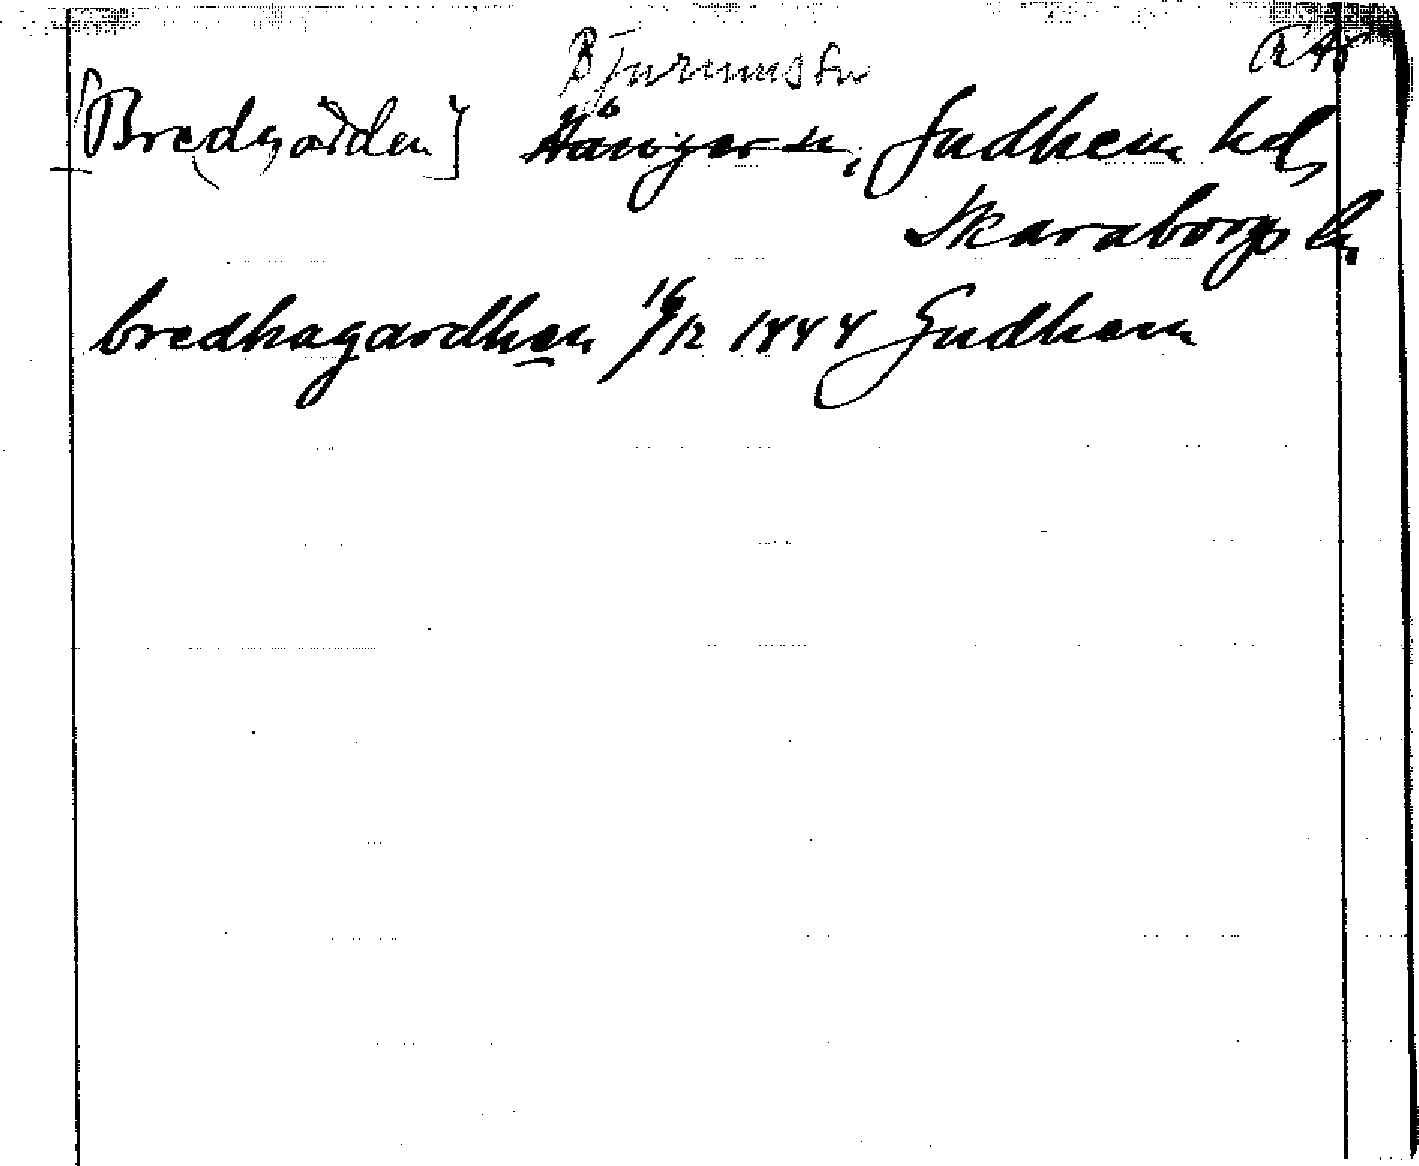 Bjurums sn
[Bredgården] Hångers sn, Gudhem hd,
Skaraborgs l.
bredhagardhen 16/12 1444 Gudhem